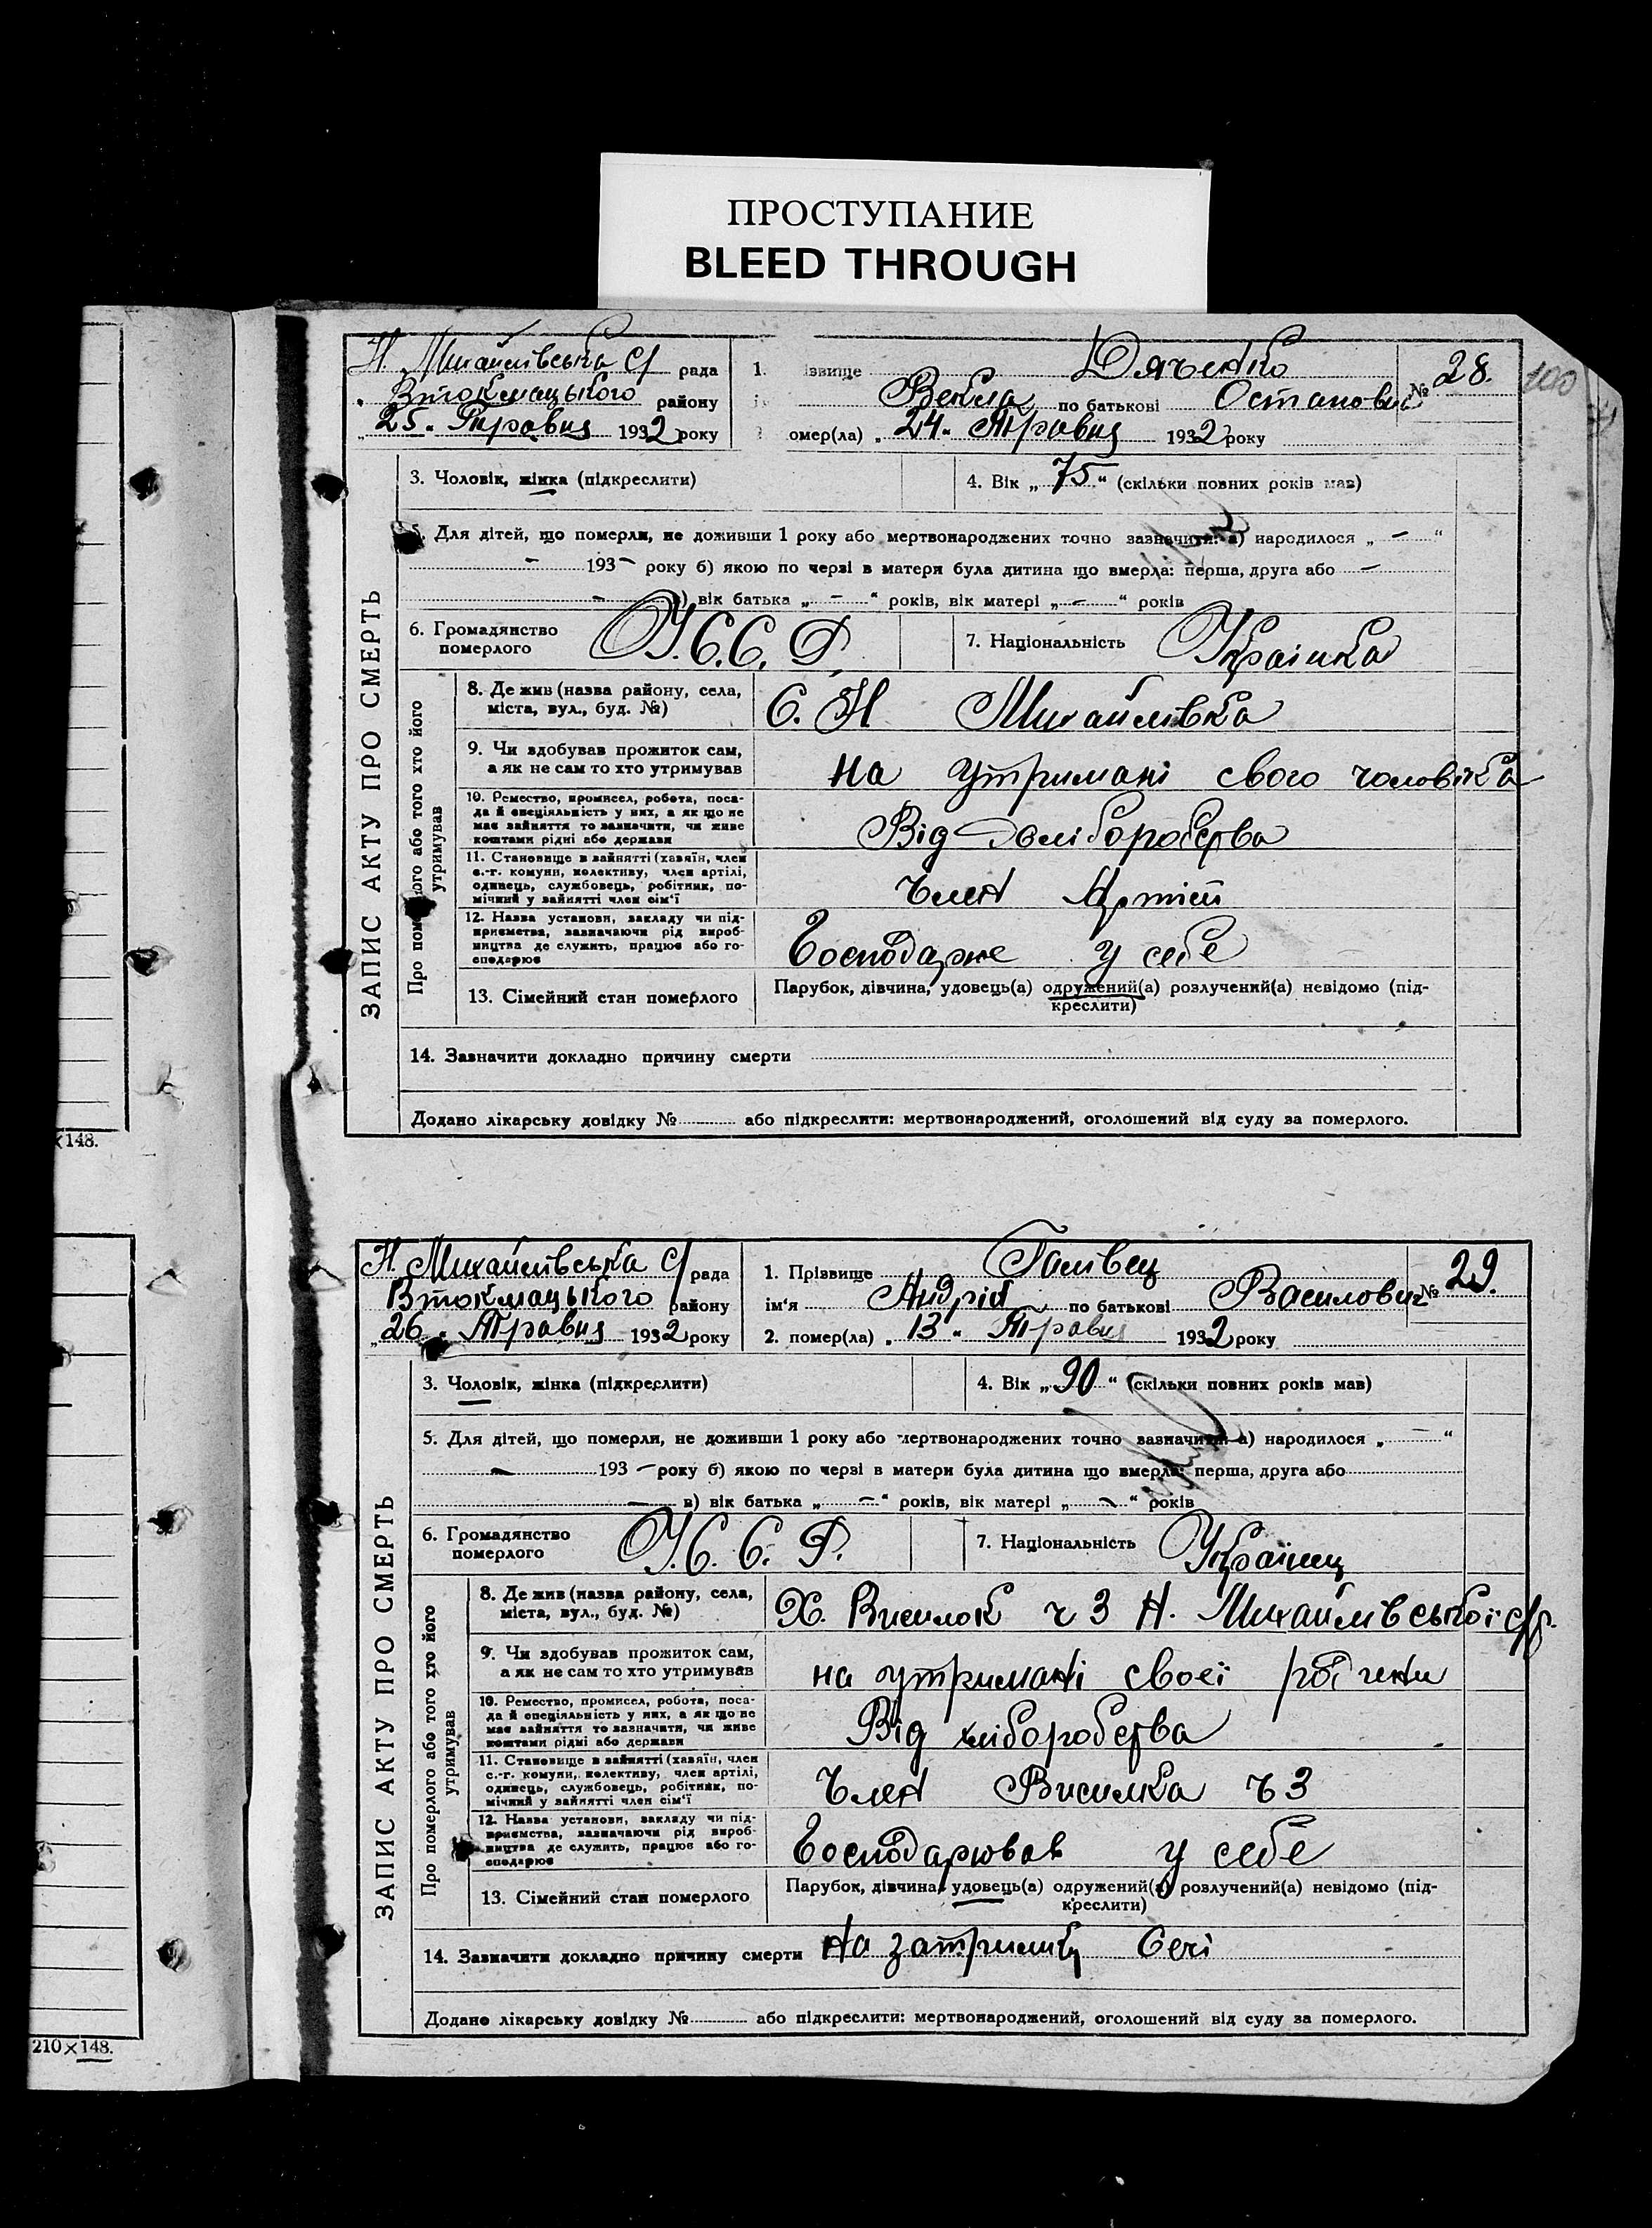 ПРОСТУПАНИЕ
BLEED THROUGH
Н. Михайлівська С/ рада
Втокмацького району
„25„ Травня 1932 року
1. ізвище Дяченко
Векла по батькові Остапов
омер(ла) „24„ Травня 1932 року
№ 28.
100
3. Чоловік, жінка (підкреслити)
4. Вік „75“ (скільки повних років мав)
5. Для дітей, що померли, не доживши 1 року або мертвонароджених точно зазначити: а) народилося „ – “
– 193– року б) якою по черзі в матери була дитина що вмерла: перша, друга або –
– в) вік батька „ – “ років, вік матері „ – “ років
6. Громадянство
померлого
У.С.С.Р.
7. Національність Українка
ЗАПИС АКТУ ПРО СМЕРТЬ
Про померлого або того хто його
утримував
8. Де жив (назва району, села,
міста, вул., буд. №)
С. Н Михайлівка
9. Чи здобував прожиток сам,
а як не сам то хто утримував
на утримані свого чоловіка
10. Ремество, промисел, робота, поса-
да й спеціяльність у них, а як що не
має зайняття то зазначити, чи живе
коштами рідні або держави
Від хліборобства
11. Становище в зайнятті (хазяїн, член
с.-г. комуни, колективу, член артілі,
одинець, службовець, робітник, по-
мічний у зайнятті член сім'ї
Член Артіли
12. Назва установи, закладу чи під-
приємства, зазначаючи рід вироб-
ництва де служить, працює або го-
сподарює
Господарює у себе
13. Сімейний стан померлого
Парубок, дівчина, удовець(а) одружений(а) розлучений(а) невідомо (під-
креслити)
14. Зазначити докладно причину смерти
Додано лікарську довідку № або підкреслити: мертвонароджений, оголошений від суду за померлого.
×148.
Н. Михайлівська С/ рада
Втокмацького району
„26„ Травня 1932 року
1. Прізвище Галівец
ім'я Андрій по батькові Василович
2. помер(ла) „13„ Травня 1932 року
№ 29.
3. Чоловік, жінка (підкреслити)
4. Вік „90“ (скільки повних років мав)
5. Для дітей, що померли, не доживши 1 року або мертвонароджених точно зазначити а) народилося „ – “
– 193– року б) якою по черзі в матери була дитина що вмерла: перша, друга або
– в) вік батька „ – “ років, вік матері „ – “ років
6. Громадянство
померлого
У.С.С.Р.
7. Національність Українец
ЗАПИС АКТУ ПРО СМЕРТЬ
Про померлого або того хто його
утримував
8. Де жив (назва району, села,
міста, вул., буд. №)
Х. Висилок ч 3 Н. Михайлівської с/р.
9. Чи здобував прожиток сам,
а як не сам то хто утримував
на утримані своєї родини
10. Ремество, промисел, робота, поса-
да й спеціяльність у них, а як що не
має зайняття то зазначити, чи живе
коштами рідні або держави
Від хліборобства
11. Становище в зайнятті (хазяїн, член
с.-г. комуни, колективу, член артілі,
одинець, службовець, робітник, по-
мічний у зайнятті член сім'ї
Член Висилка ч 3
12. Назва установи, закладу чи під-
приємства, зазначаючи рід вироб-
ництва де служить, працює або го-
сподарює
Господарював у себе
13. Сімейний стан померлого
Парубок, дівчина, удовець(а) одружений(а) розлучений(а) невідомо (під-
креслити)
14. Зазначити докладно причину смерти На затримку Сечі
Додано лікарську довідку № або підкреслити: мертвонароджений, оголошений від суду за померлого.
210×148.